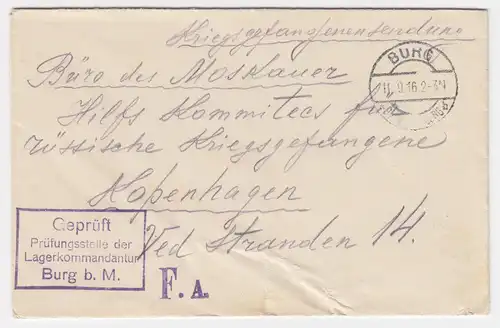 Kriegsgefangenensendung
BURG
11.9.16.2-3N
Büro des Moskauer
Hilfs Kommitees für
rüssische Kriegsgefangene
Kopenhagen
Ved Stranden 14.
Geprüft
Prüfungsstelle der
Lagerkommandantur
Burg b. M.
F. A.